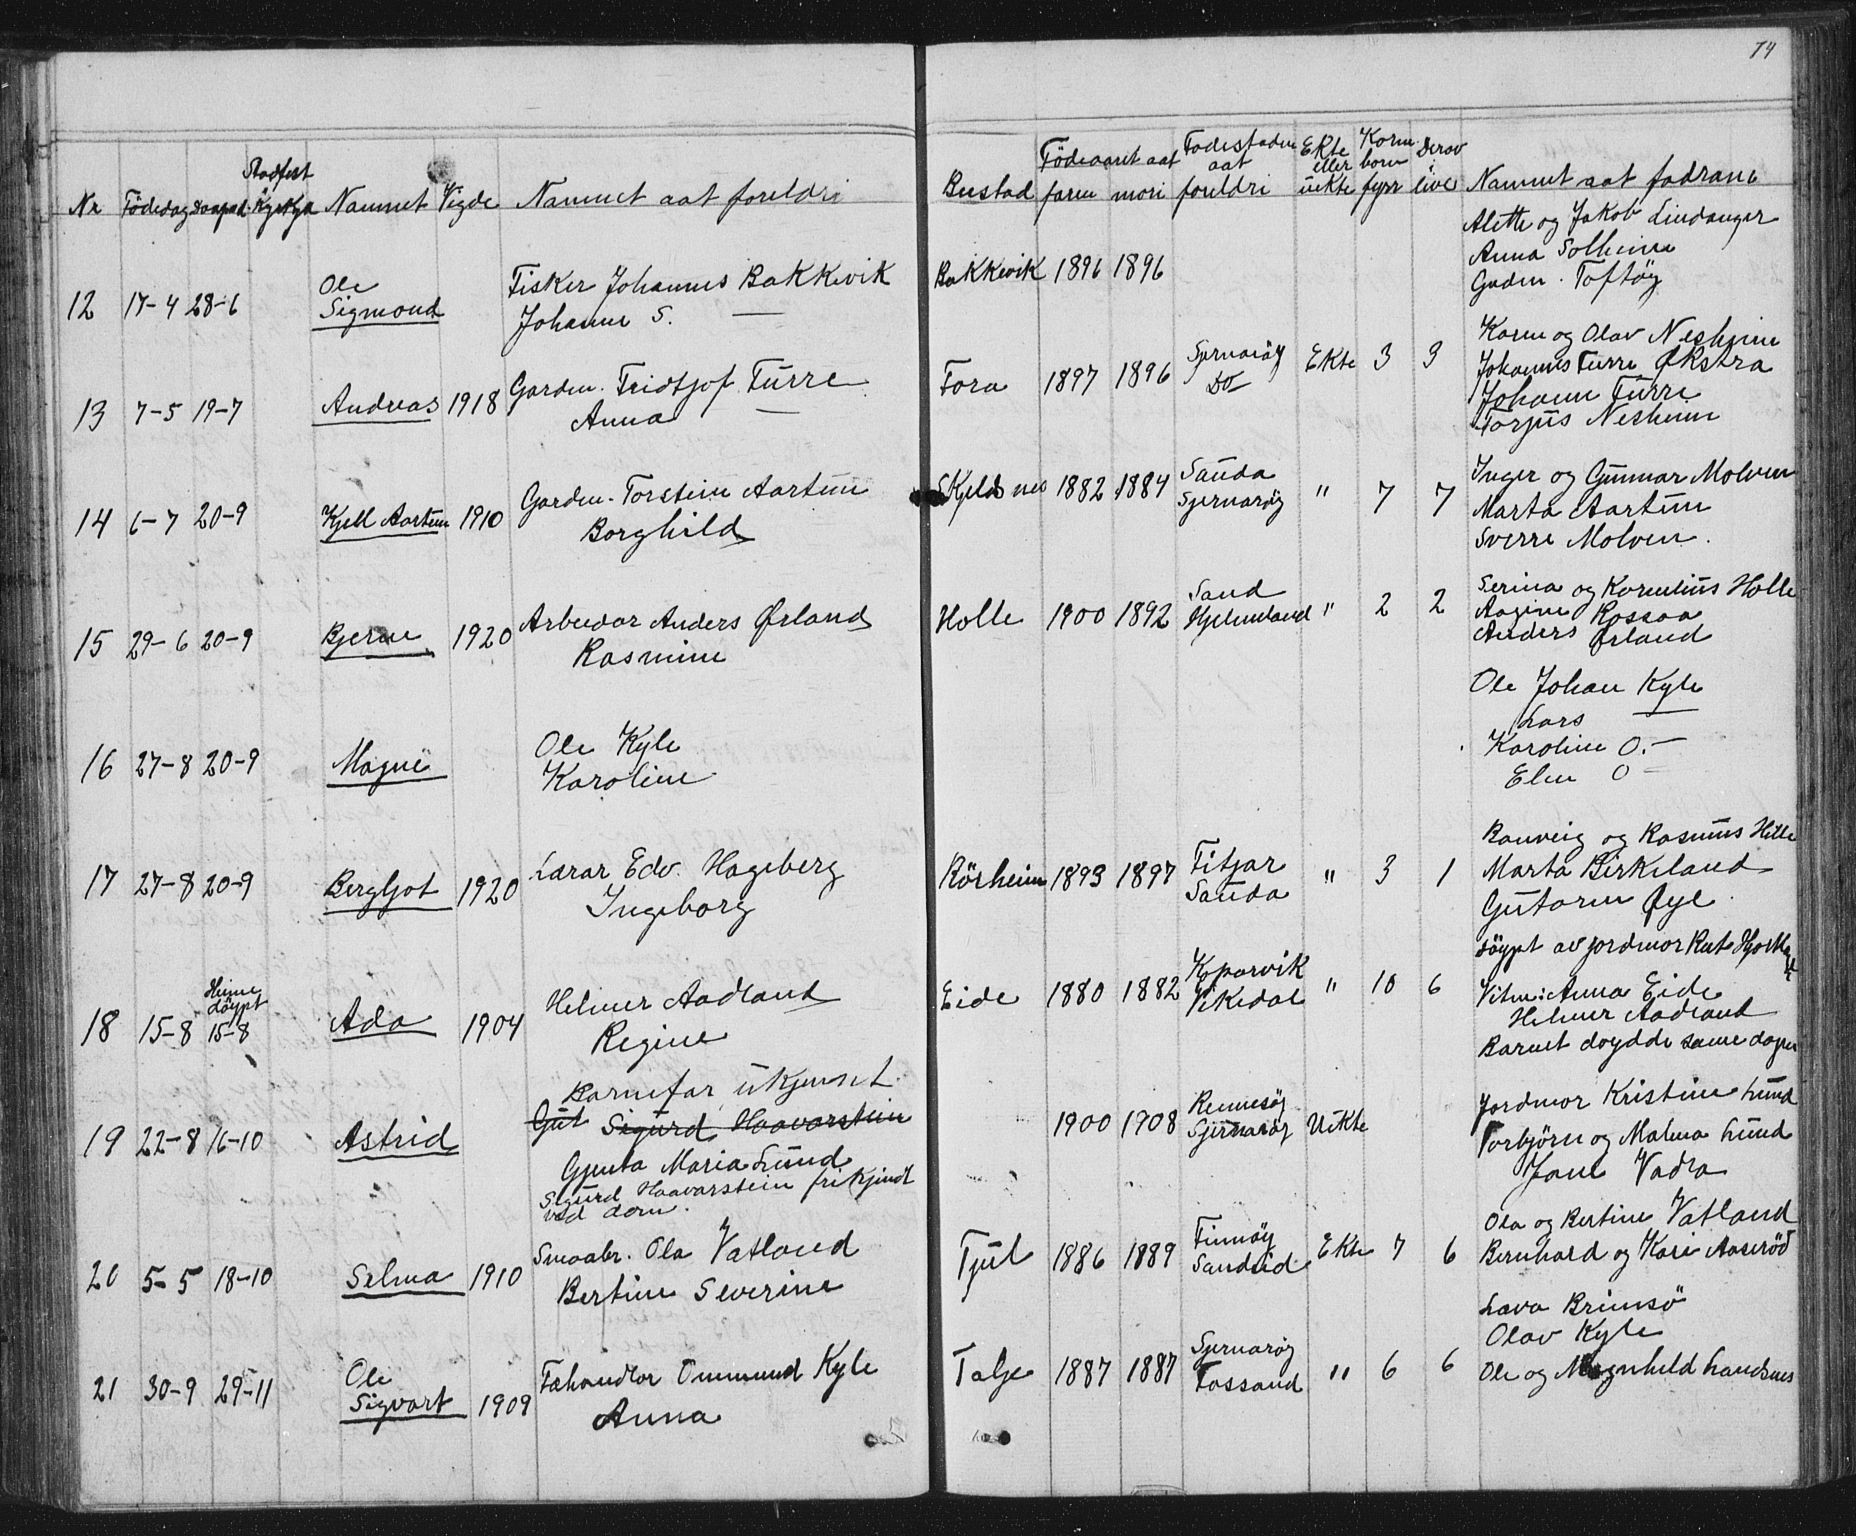 74
Nr Födedag Daapsd. Stadfest Kyrkja Namnet Vigde Namnet aat foreldri
Bustad Födeaaret aat faren mori Födestaden aat foreldri Ekte eller uekte Korm. born fyrr Derav live Namnet aat fadrane
12 17-4 28-6 Ole Sigmond Fisker Johannes Bakkevik
Johanne S. —
Bakkevik 1896 1896
Alette og Jakob Lindanger
Anna Solheim
Gudm. Toftöy
13 7-5 19-7 Andreas 1918 Gardm. Fridtjof Furre
Anna —
Fora 1897 1896 Sjernaröy Do Ekte 3 3
Karen og Olav Nesheim
Johannes Furre Økstra
Johann Furre
Torjus Nesheim
14 6-7 20-9 Kjell Aartun 1910 Gardm. Torstein Aartun
Borghild
Skjeldnes 1882 1884 Sauda Sjernaröy " 7 7
Inger og Gunnar Molven
Marta Aartun
Sverre Molven.
15 29-6 20-9 Bjerne 1920 Arbeidar Anders Ørland
Rasmine
Halle 1900 1892 Sand Hjelmeland " 2 2
Serina og Kornelius Halle
Aagine Rossaa
Anders Ørland
16 27-8 20-9 Magne Ole Kyle
Karoline
Ole Johan Kyle
Lars —
Karoline O. —
Elen O —
17 27-8 20-9 Bergljot 1920 Lærar Edv. Hageberg
Ingeborg
Rörheim 1893 1897 Fitjar Sauda " 3 1
Ranveig og Rasmus Hille
Marta Birkeland
Gutorm Øye.
18 15-8 Heime döypt 15-8 Ada 1904 Helmer Aadland
Regine
Eide 1880 1882 Koparvik Vikedal " 10 6
döypt av jordmor Rut
Vitne: Anna Eide
Helmer Aadland
Barnet døydde same dagen
19 22-8 16-10 Astrid Barnefar ukjendt.
Gut Sigurd Haavarstein
Gjenta Maria Lund
Sigurd Haavarstein frikjendt
ved dom.
1900 1908 Rennesöy Sjernaröy Uekte
Jordmor Kristine Lund
Torbjörn og Malena Lund
Jane Vadla
20 5-5 18-10 Selma 1910 Smaabr. Ola Vatland
Bertine Severine
Tjul 1886 1889 Finnöy Sandeid Ekte 7 6
Ola og Bertine Vatland
Bernhard og Kari Aaseröd
21 30-9 29-11 Ole Sigvart 1909 Fæhandlar Ommund Kyle
Anna
Talje 1887 1887 Sjernaröy Fossand " 6 6
Lava Brimsö
Olav Kyle
Ole og Magnhild Landsnes